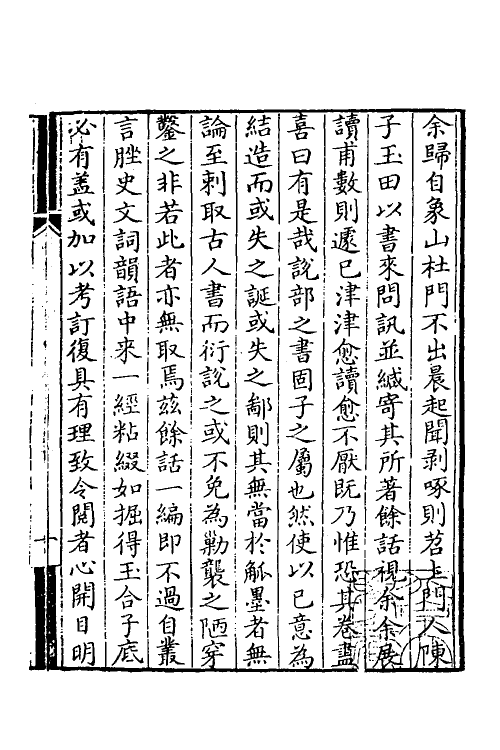 余歸自象山杜門不出晨起聞剥啄則茗上門人陳
子玉田以書來問訊並緘寄其所著餘話視余余展
讀甫數則遽已津津愈讀愈不厭既乃惟恐其卷盡
喜曰有是哉說部之書固子之屬也然使以已意為
結造而或失之誕或失之鄙則其無當於觚墨者無
論至刺取古人書而衍說之或不免為勦襲之陋穿
鑿之非若此者亦無取焉兹餘話一編即不過自叢
言脞史文詞韻語中來一經粘綴如掘得玉合子底
必有盖或加以考訂復具有理致令閱者心開目明